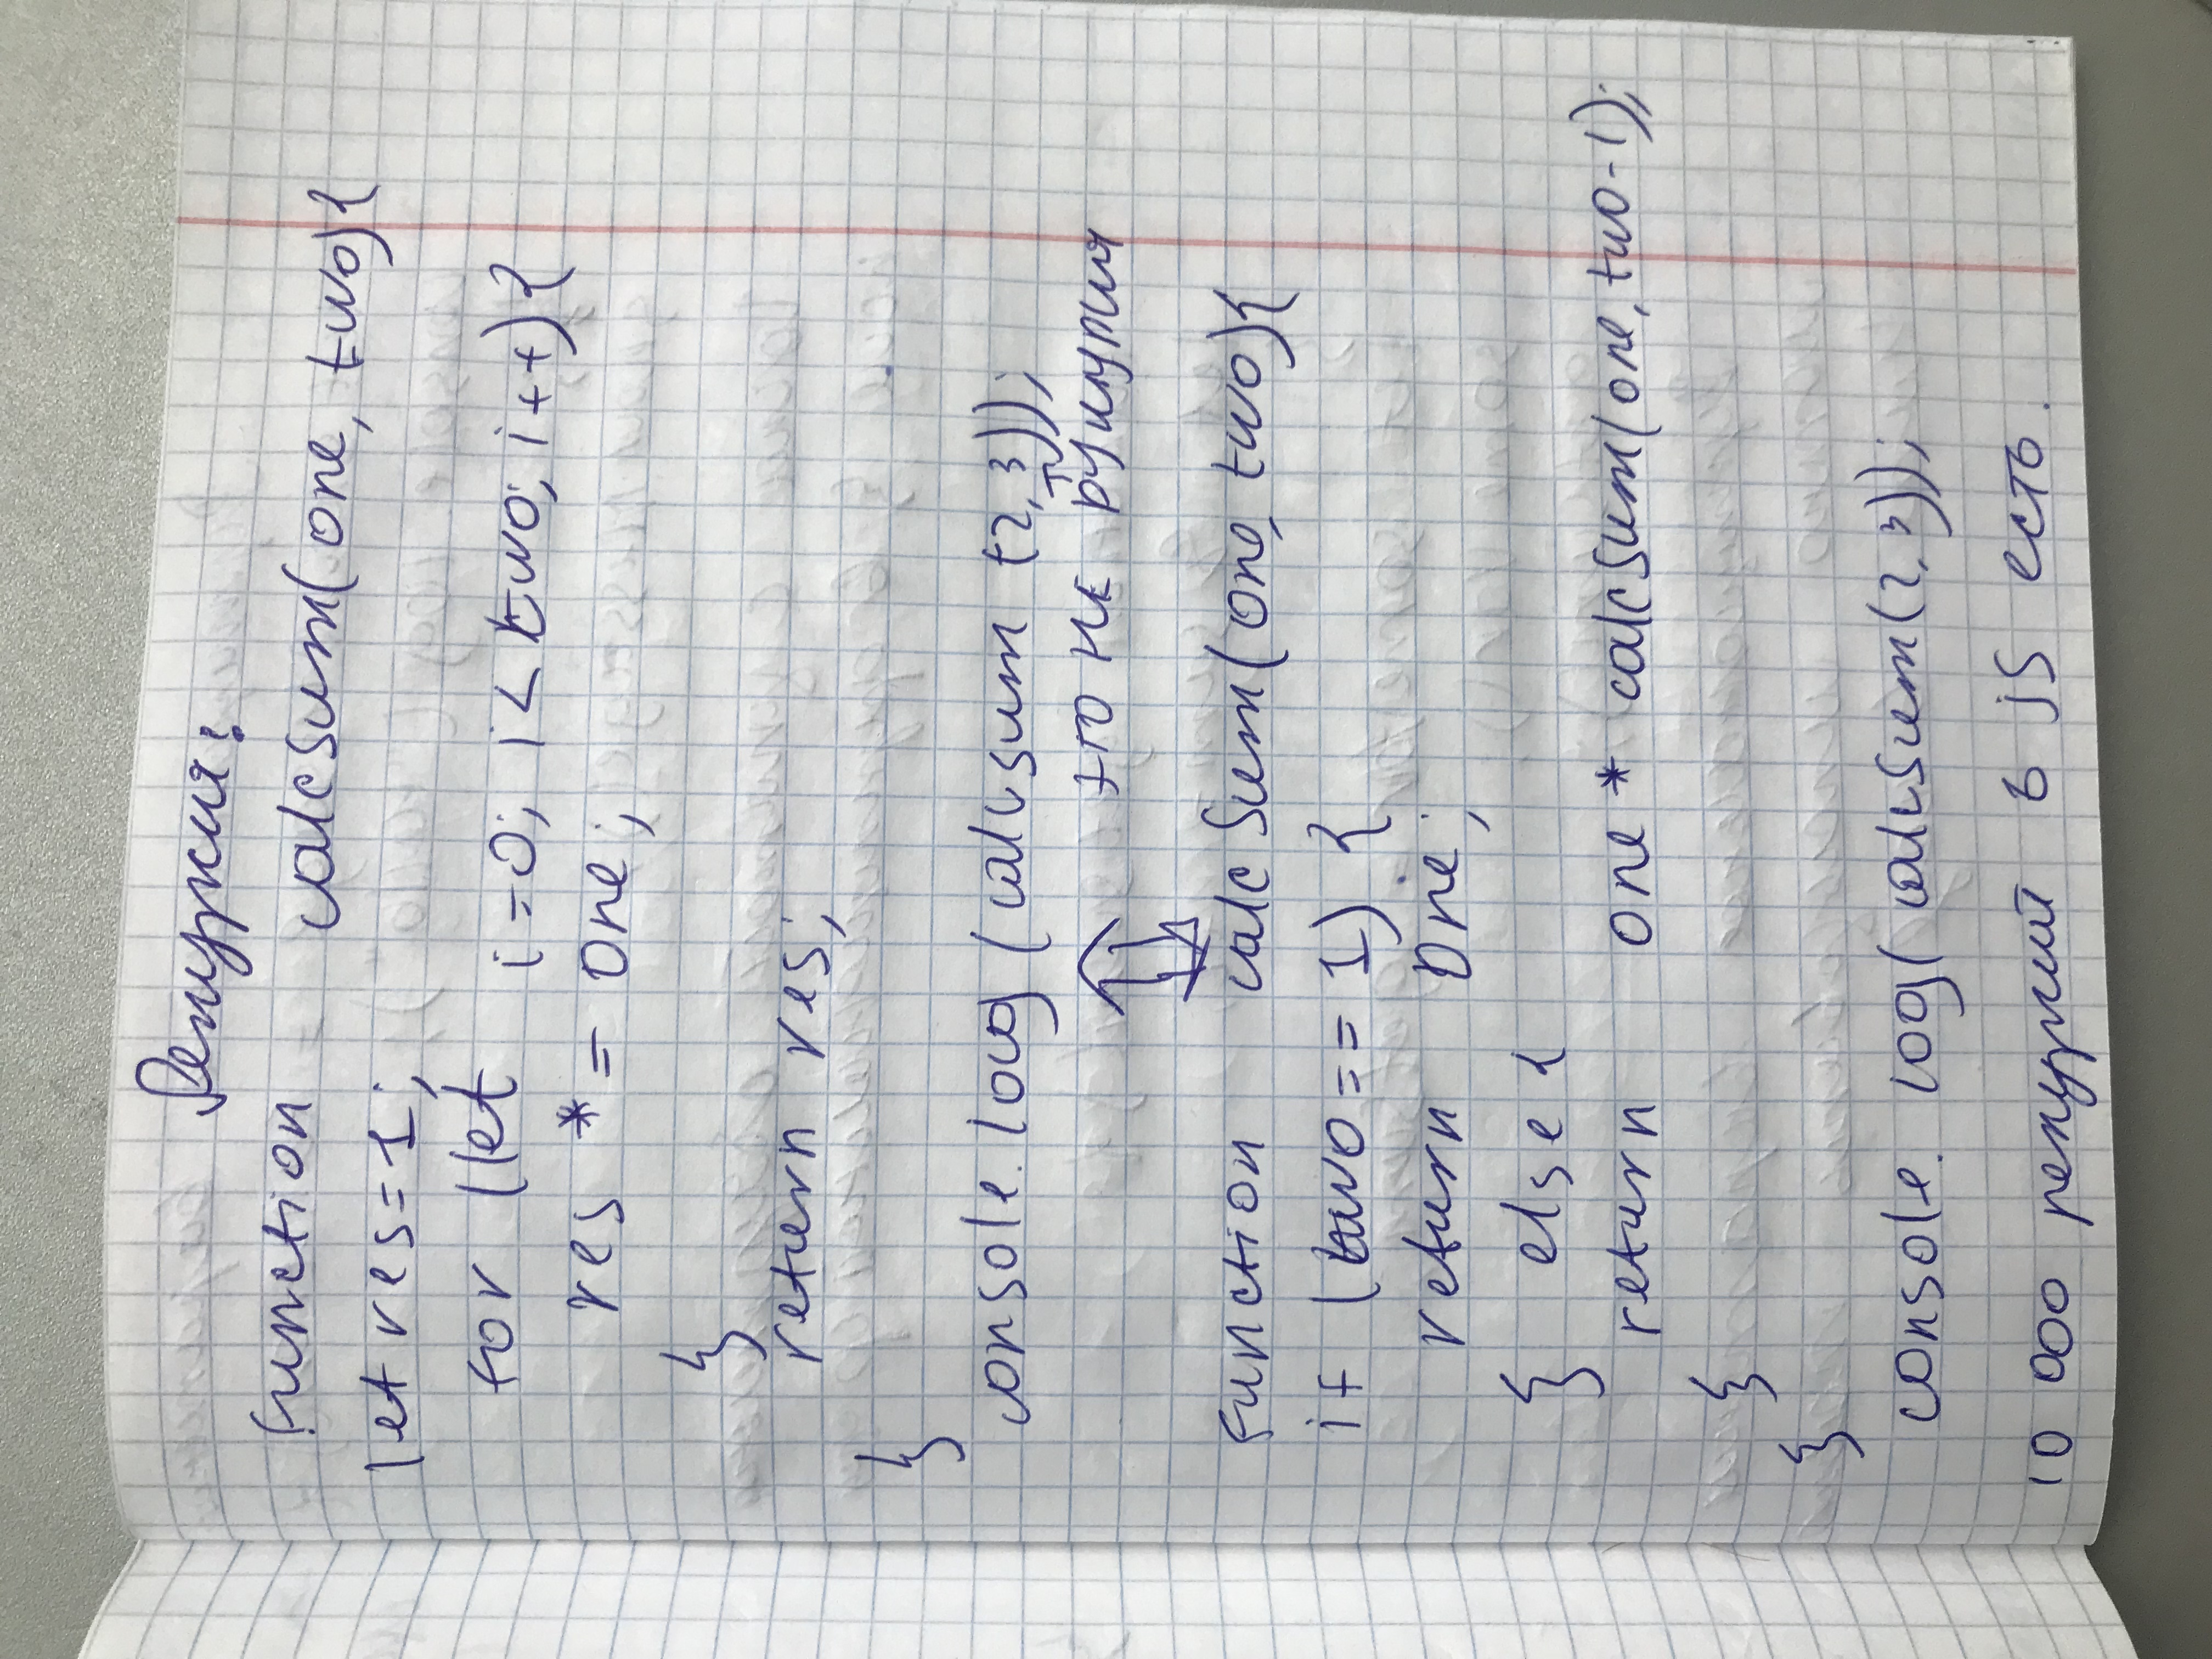 Рекуркия:
function calcSum(one, two){
let res=1;
for (let i=0; i < two; i++){
res *= one;
}
return res;
}
console.log (calcsum (2,3));
↑ это не рекуркия
function calcSum(one, two){
if (two == 1) {
return one;
} else {
return one * calcSum(one, two-1);
}
}
console. log(calcSum(2,3));
10 000 рекуркий в js есть.